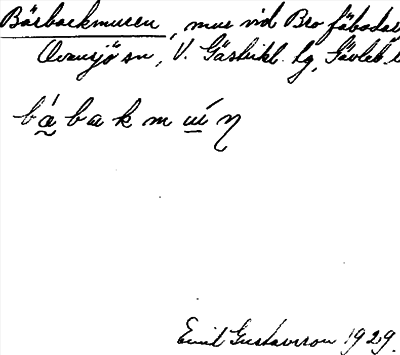 Bärbackmuren, mur vid Bro fäbodar,
Ovansjö sn, V. Gästrikl. hg, Gävleb. l
bábakmuiŋ
Emil Gustavsson 1929.